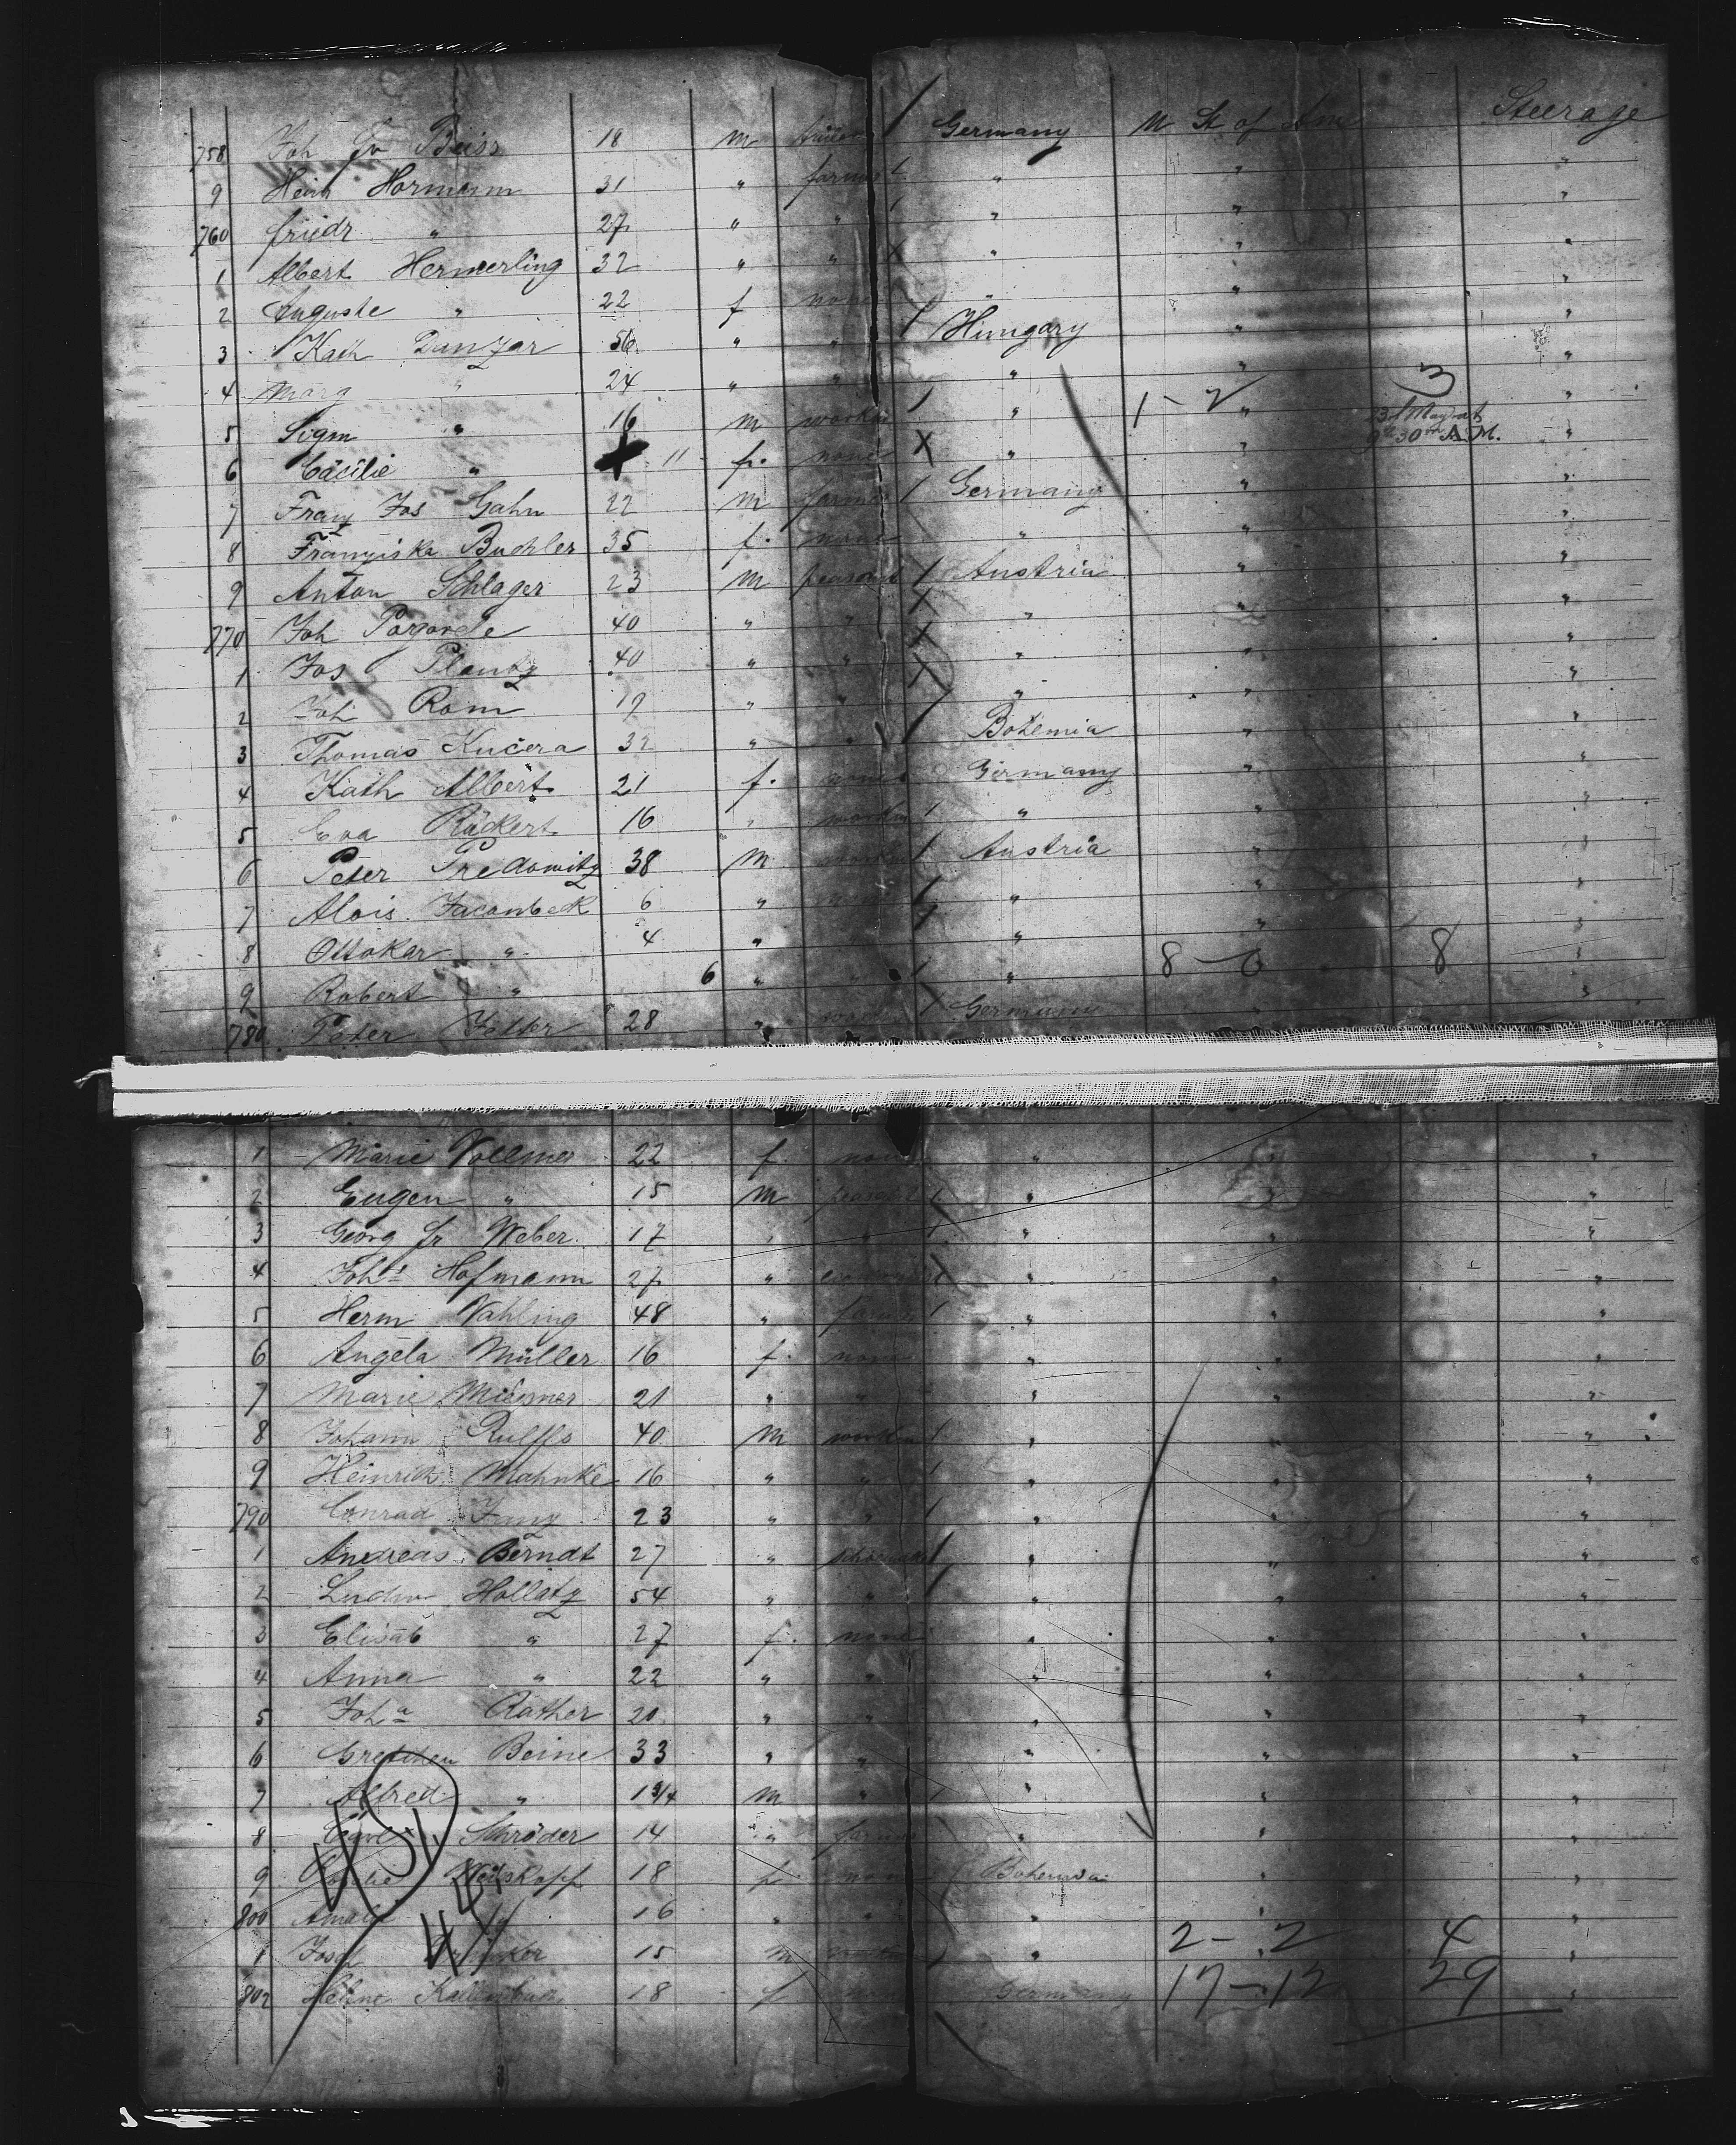 758 Joh Beiss 18 m Germany U St of Am Steerage
9 Heinr Hormann 31 " farmer " " "
760 friedr " 27 " " " " "
1 Albert Hermerling 32 " " " " "
2 Auguste " 22 f none " " "
3 Kath Danzar 56 " " Hungary " "
4 Marg " 24 " " " " "
5 Sigm " 16 m worker " 1-2 " 3 "
13 May at
9h 30m A.M.
6 Cäcilie " 11 f. none " " "
7 Franz Jos Gahn 22 m farmer Germany " "
8 Franziska Buchler 35 f. none " " "
9 Anton Schlager 23 m peasant Austria " "
770 Joh 40 " " " " "
1 Jos Plantz 40 " " " " "
2 Joh Rom 19 " " " " "
3 Thomas Kučera 32 " " Bohemia " "
4 Kath Albert 21 f. none Germany " "
5 Eva Rückert 16 " worker " " "
6 Peter Predowitz 38 m worker Austria " "
7 Alois 6 " none " " "
8 Ottokar " 4 " " " "
9 Robert " 6 " " " 8-0 8 "
780 Peter 28 " worker Germany " "
1 Marie Vollmer 22 f. none " " "
2 Eugen " 15 m peasant " " "
3 Georg Fr Weber 17 " " " " "
4 Johs Hofmann 27 " " " "
5 Herm Vahling 48 " farmer " " "
6 Angela Müller 16 f. none " " "
7 Marie 21 " " " " "
8 Johann Rulffs 40 m worker " " "
9 Heinrich Mahnke 16 " " " " "
790 Conrad 23 " " " " "
1 Andreas Berndt 27 " " " "
2 Ludw Hollatz 54 " " " " "
3 Elisab " 27 f. none " " "
4 Anna " 22 " " " " "
5 Joha Rather 20 " " " " "
6 Gretchen Beine 33 " " " " "
7 Alfred " 1 3/4 m " " " "
8 Carl Schröder 14 " farmer " " "
9 Weiskopf 18 f none Bohemia " "
800 Amalie " 16 " " " " "
1 Josef 15 m " 2-2 4 "
802 Helene 18 f Germany 17-12 29 "